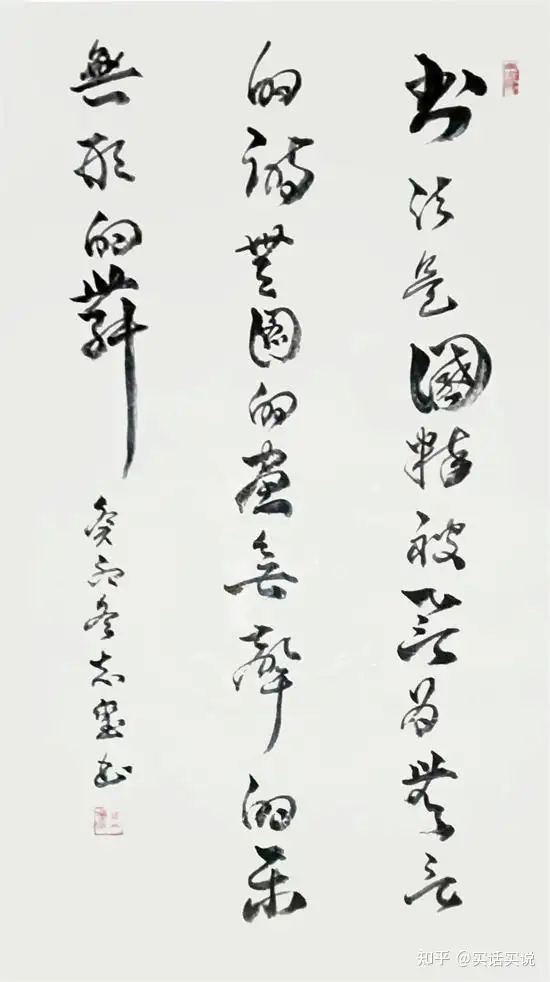 书法是國粹被誉为無言
的詩無圖的画無聲的樂
無形的舞
癸卯冬志玺书
知乎 @实话实说